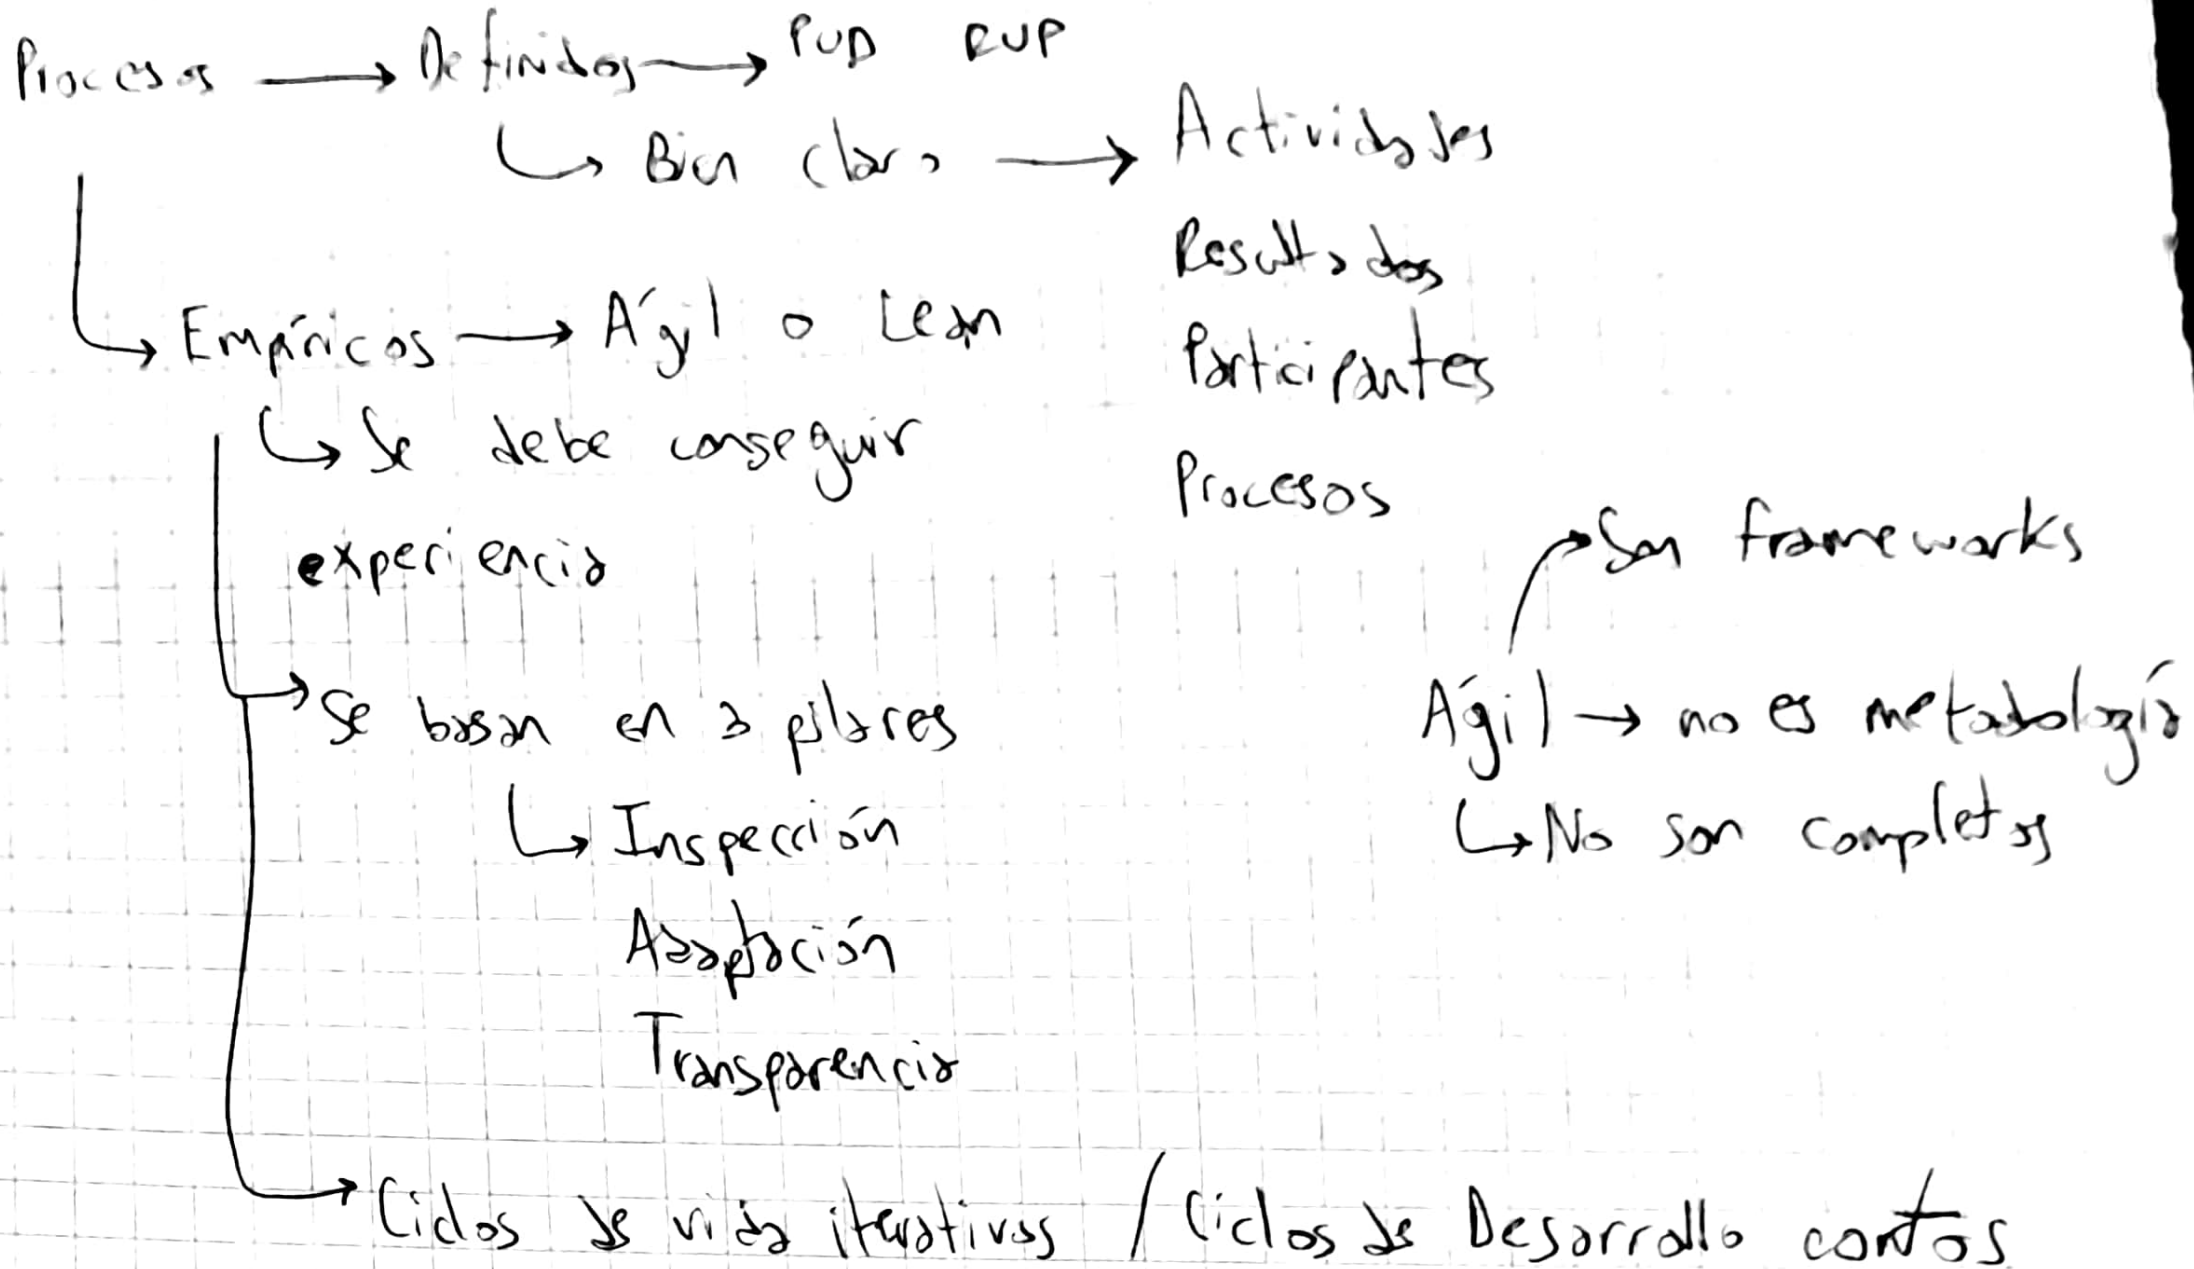 Procesos → Definidos → PUD RUP
↳ Bien claro → Actividades
Resultados
Participantes
Procesos
↳ Empíricos → Ágil o Lean
↳ Se debe conseguir
experiencia
→ Se basan en 3 pilares
↳ Inspección
Adaptación
Transparencia
→ Ciclos de vida iterativos / Ciclos de Desarrollo cortos
→ Son frameworks
Ágil → no es metodología
↳ No son completos